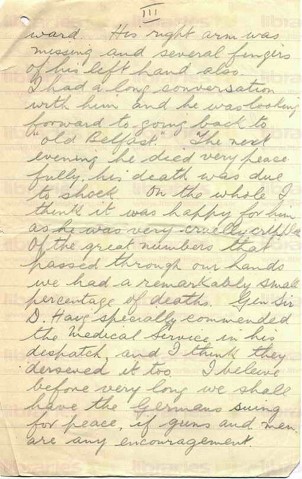 III
ward His right arm was
missing and several fingers
of his left hand also.
I had a long conversation
with him and he was looking
forward to going back to
"old Belfast." The next
evening he died very peace
fully, his death was due
to shock On the whole I
think it was happy for him
as he was very cruelly
Of the great numbers that
passed through our hands
we had a remarkably small
percentage of deaths. Gen Sir
D. Haig specially commended
the Medical Service in his
dispatch, and I think they
derseved it too. I believe
before very long we shall
have the Germans suing
for peace, if guns and men
are any encouragement
libraries